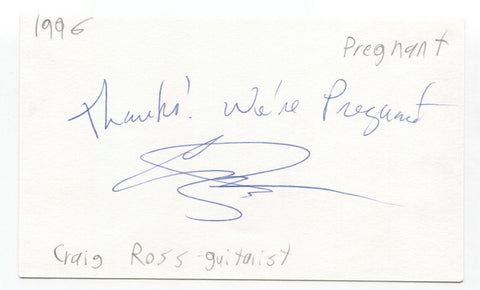 1996
Pregnant
Thanks! We're Pregnant
Craig Ross - guitarist